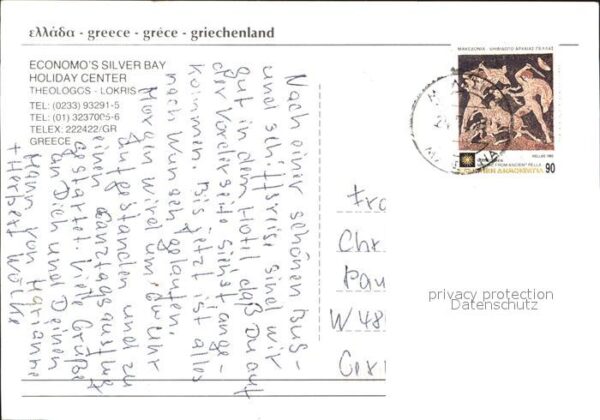 ελλάδα - greece - gréce - griechenland
ECONOMO'S SILVER BAY
HOLIDAY CENTER
THEOLOGOS - LOKRIS
TEL: (0233) 93291-5
TEL: (01) 3237005-6
TELEX: 222422/GR
GREECE
Nach einer schönen Bus-
und schiffsreise sind wir
gut in dem Hotel daß Du auf
der Vorderseite siehst ange-
kommen. Bis jetzt ist alles
nach Wunsch gelaufen.
Morgen wird um 6 Uhr
aufgestanden und zu
einen Ganztagsausflug
gestartet. Viele Grüße
an Dich und Deinen
Mann von Marianne
+ Herbert
ΜΑΚΕΔΟΝΙΑ - ΨΗΦΙΔΩΤΟ ΑΡΧΑΙΑΣ ΠΕΛΛΑΣ
HELLAS 1992
FROM ANCIENT PELLA
90
Fra
Chr
Pau
W 48
privacy protection
Datenschutz